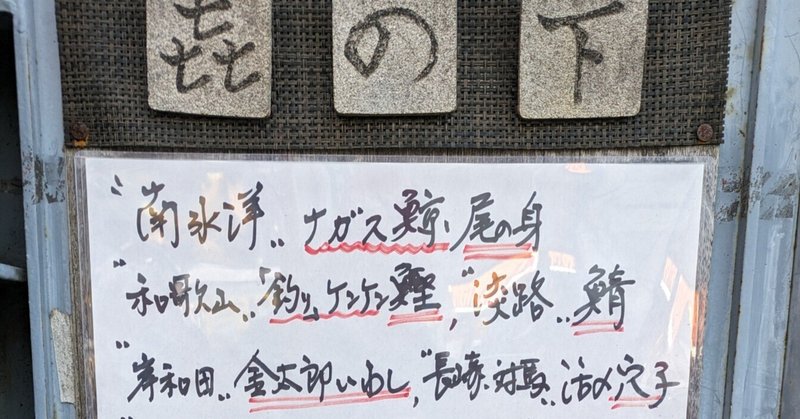 㐂の下
"南氷洋" ナガス鯨 尾の身
"和歌山" 「釣り」ケンケン鰹, "淡路" 鯖
"岸和田" 金太郎いわし, "長崎・対馬" 活〆穴子